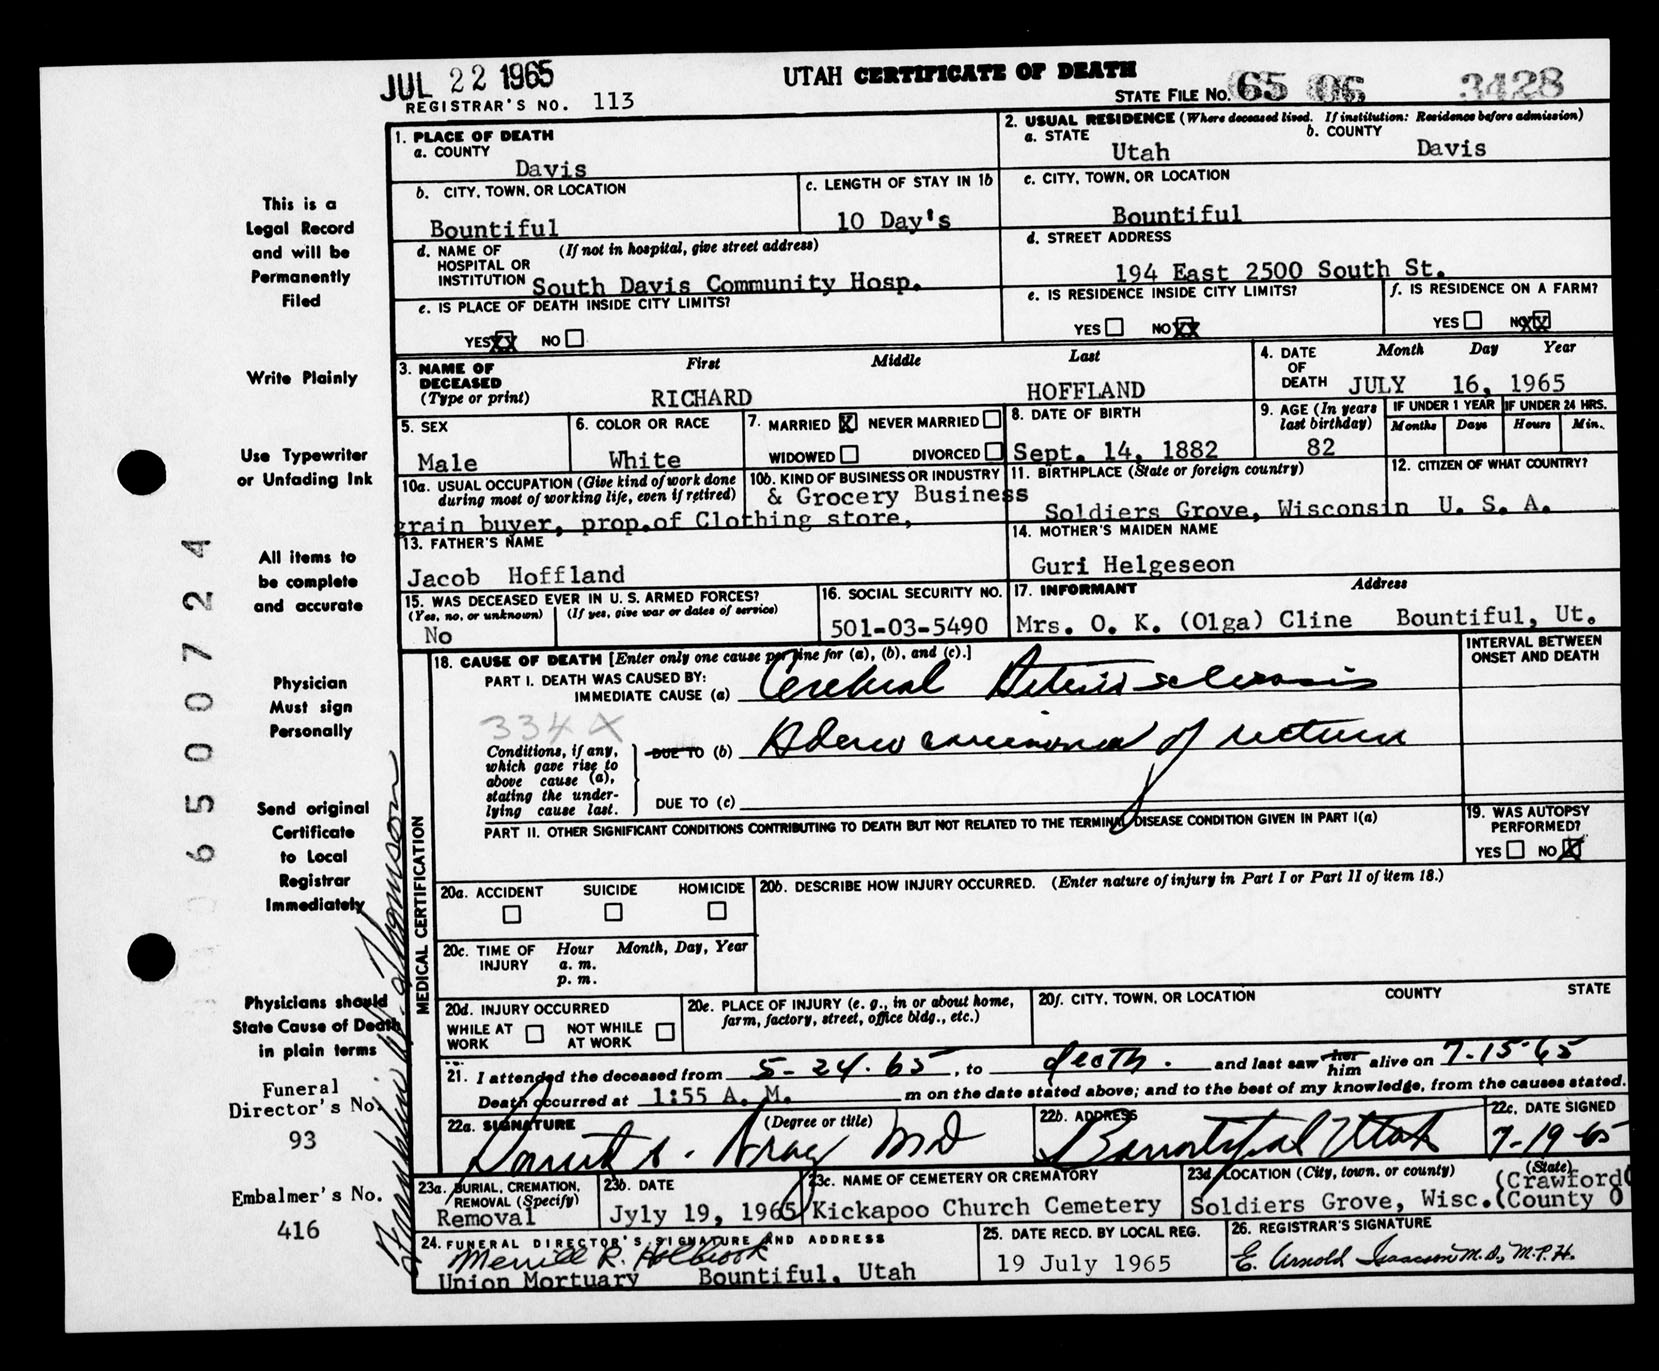 JUL 22 1965
UTAH CERTIFICATE OF DEATH
REGISTRAR'S NO. 113
STATE FILE NO. 65 06 3428
1. PLACE OF DEATH
a. COUNTY
Davis
2. USUAL RESIDENCE (Where deceased lived. If institution: Residence before admission)
a. STATE b. COUNTY
Utah Davis
b. CITY, TOWN, OR LOCATION
Bountiful
c. LENGTH OF STAY IN 1b
10 Day's
c. CITY, TOWN, OR LOCATION
Bountiful
d. NAME OF (If not in hospital, give street address)
HOSPITAL OR
INSTITUTION South Davis Community Hosp.
d. STREET ADDRESS
194 East 2500 South St.
e. IS PLACE OF DEATH INSIDE CITY LIMITS?
YES XX NO
e. IS RESIDENCE INSIDE CITY LIMITS?
YES NO XX
f. IS RESIDENCE ON A FARM?
YES NO XX
3. NAME OF First Middle Last
DECEASED
(Type or print) RICHARD HOFFLAND
4. DATE Month Day Year
OF
DEATH JULY 16, 1965
5. SEX
Male
6. COLOR OR RACE
White
7. MARRIED X NEVER MARRIED
WIDOWED DIVORCED
8. DATE OF BIRTH
Sept. 14, 1882
9. AGE (In years
last birthday)
82
IF UNDER 1 YEAR IF UNDER 24 HRS.
Months Days Hours Min.
10a. USUAL OCCUPATION (Give kind of work done
during most of working life, even if retired)
10b. KIND OF BUSINESS OR INDUSTRY
& Grocery Business
grain buyer, prop.of Clothing store,
11. BIRTHPLACE (State or foreign country)
Soldiers Grove, Wisconsin
12. CITIZEN OF WHAT COUNTRY?
U. S. A.
13. FATHER'S NAME
Jacob Hoffland
14. MOTHER'S MAIDEN NAME
Guri Helgeseon
15. WAS DECEASED EVER IN U. S. ARMED FORCES?
(Yes, no, or unknown) (If yes, give war or dates of service)
No
16. SOCIAL SECURITY NO.
501-03-5490
17. INFORMANT Address
Mrs. O. K. (Olga) Cline Bountiful, Ut.
MEDICAL CERTIFICATION
18. CAUSE OF DEATH [Enter only one cause per line for (a), (b), and (c).]
INTERVAL BETWEEN
ONSET AND DEATH
PART I. DEATH WAS CAUSED BY:
IMMEDIATE CAUSE (a) Cerebral Arteriosclerosis
334X
Conditions, if any,
which gave rise to
above cause (a),
stating the under-
lying cause last.
DUE TO (b) Adeno carcinoma of rectum
DUE TO (c)
PART II. OTHER SIGNIFICANT CONDITIONS CONTRIBUTING TO DEATH BUT NOT RELATED TO THE TERMINAL DISEASE CONDITION GIVEN IN PART I(a)
19. WAS AUTOPSY
PERFORMED?
YES NO X
20a. ACCIDENT SUICIDE HOMICIDE
20b. DESCRIBE HOW INJURY OCCURRED. (Enter nature of injury in Part I or Part II of item 18.)
20c. TIME OF Hour Month, Day, Year
INJURY a. m.
p. m.
20d. INJURY OCCURRED
WHILE AT NOT WHILE
WORK AT WORK
20e. PLACE OF INJURY (e. g., in or about home,
farm, factory, street, office bldg., etc.)
20f. CITY, TOWN, OR LOCATION COUNTY STATE
21. I attended the deceased from 5-24-65, to death. and last saw her him alive on 7-15-65
Death occurred at 1:55 A. M. m on the date stated above; and to the best of my knowledge, from the causes stated.
22a. SIGNATURE (Degree or title)
MD
22b. ADDRESS
Bountiful Utah
22c. DATE SIGNED
7-19-65
23a. BURIAL, CREMATION,
REMOVAL (Specify)
Removal
23b. DATE
Jyly 19, 1965
23c. NAME OF CEMETERY OR CREMATORY
Kickapoo Church Cemetery
23d. LOCATION (City, town, or county) (State)
Soldiers Grove, Wisc. (Crawford
(County O
24. FUNERAL DIRECTOR'S SIGNATURE AND ADDRESS
Merrill R. Holbrook
Union Mortuary Bountiful, Utah
25. DATE RECD. BY LOCAL REG.
19 July 1965
26. REGISTRAR'S SIGNATURE
E. Arnold Isaacson M.D., M.P.H.
This is a
Legal Record
and will be
Permanently
Filed
Write Plainly
Use Typewriter
or Unfading Ink
All items to
be complete
and accurate
Physician
Must sign
Personally
Send original
Certificate
to Local
Registrar
Immediately
Physicians should
State Cause of Death
in plain terms
Funeral
Director's No.
93
Embalmer's No.
416
6500724